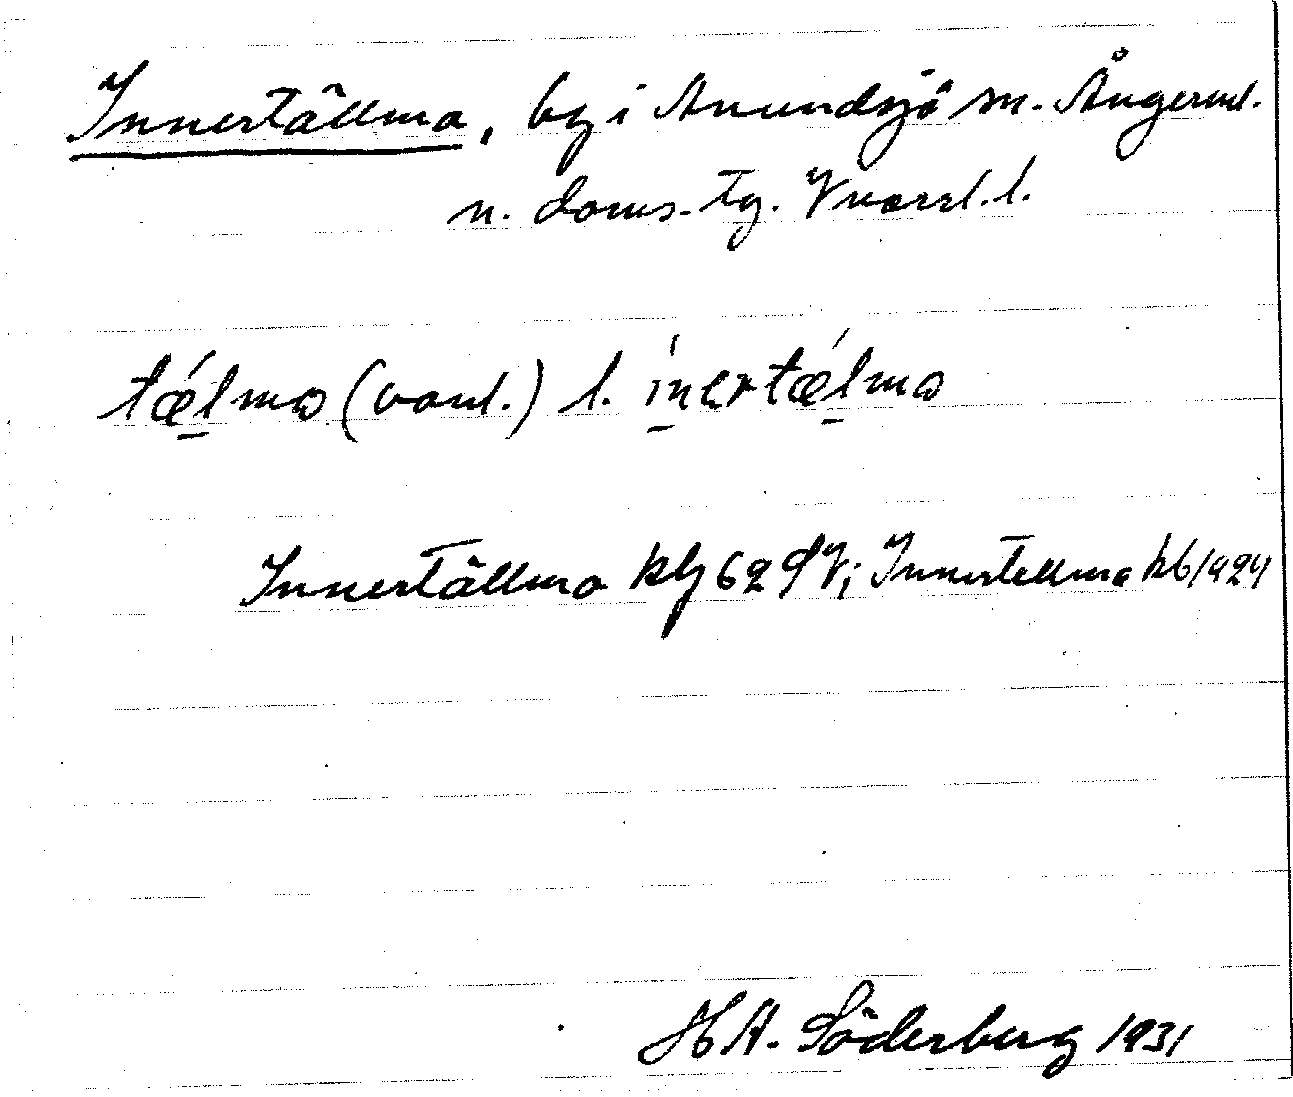 Innertällma, by i Anundsjö sn. Ångerml.
n. doms. tg. Vnorrl. l.
tǽlma (vanl.) l. ínertǽlma
Innertällma kbl 62 SV; Innertellma kb 1924
H A. Söderberg 1931